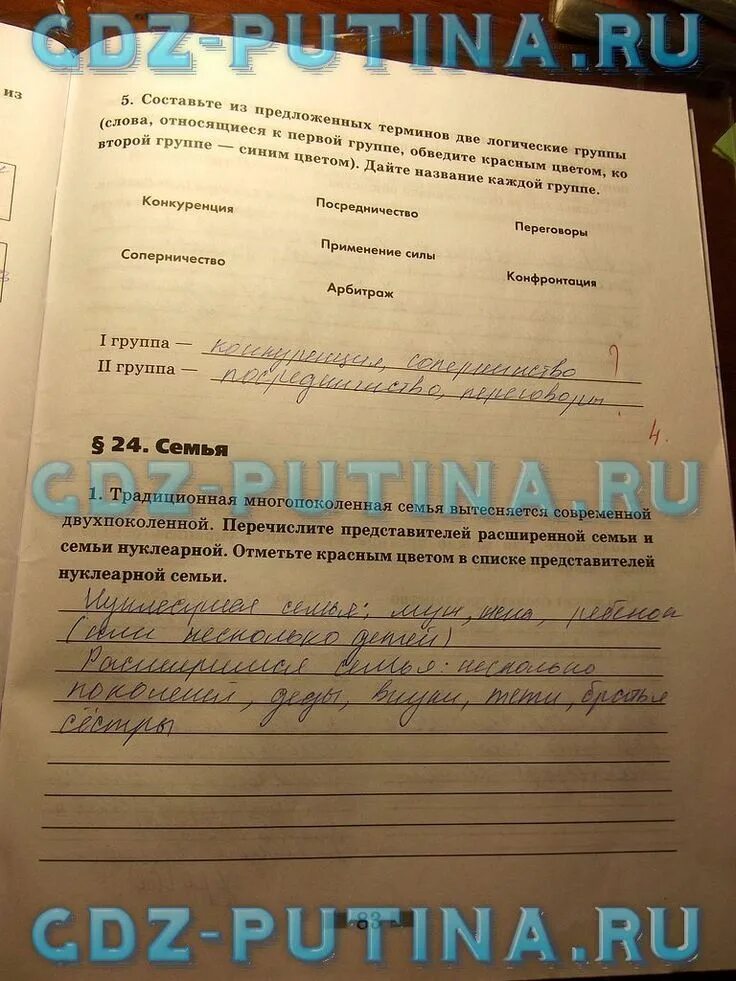 GDZ-PUTINA.RU
из
5. Составьте из предложенных терминов две логические группы
(слова, относящиеся к первой группе, обведите красным цветом, ко
второй группе — синим цветом). Дайте название каждой группе.
Конкуренция Посредничество Переговоры
Соперничество Применение силы Конфронтация
Арбитраж
I группа — конкуренция, соперничество ?
II группа — посредничество, переговоры
4.
§ 24. Семья
GDZ-PUTINA.RU
1. Традиционная многопоколенная семья вытесняется современной
двухпоколенной. Перечислите представителей расширенной семьи и
семьи нуклеарной. Отметьте красным цветом в списке представителей
нуклеарной семьи.
Нуклеарная семья: муж, жена, ребенок
(или несколько детей)
семья: несколько
поколений, деды, внуки, тети, братья
сёстры
83
GDZ-PUTINA.RU